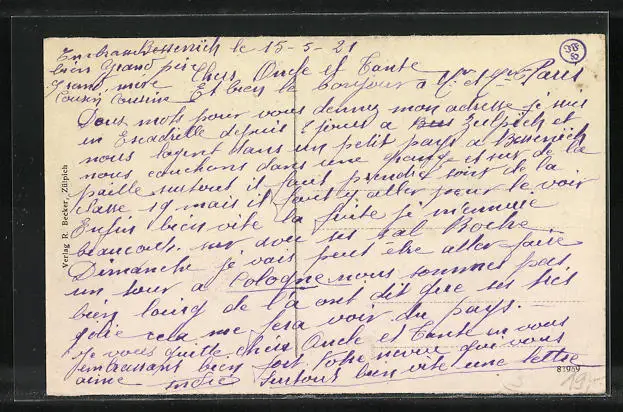 Bessenich le 15-5-21
bien Grand père
Grand mère Chers Oncle et Tante
Cousin Cousine Et bien le bonjour a Mr et Mme Paris
Deux mots pour vous donner mon adresse je suis
en Escadrille depuis 2 jours a Zulpich et
nous logent dans un petit pays a Bessenich
nous couchons dans une grange et sur de la
paille surtout il faut prendre soint de la
classe 19 mais il faut y aller pour le voir
Enfin bien vite la fuite je m'ennuie
beaucoup sur avec ses sal Boche
Dimanche je vais peut être aller faire
un tour a Cologne nous sommes pas
bien loing de l'a ont dit que ses très
jolie cela me fera voir du pays.
Je vous quitte chers Oncle et Tante en vous
embrassant bien fort Votre neveu qui vous
aime surtout bien vite une lettre
Verlag R. Becker, Zülpich
81969